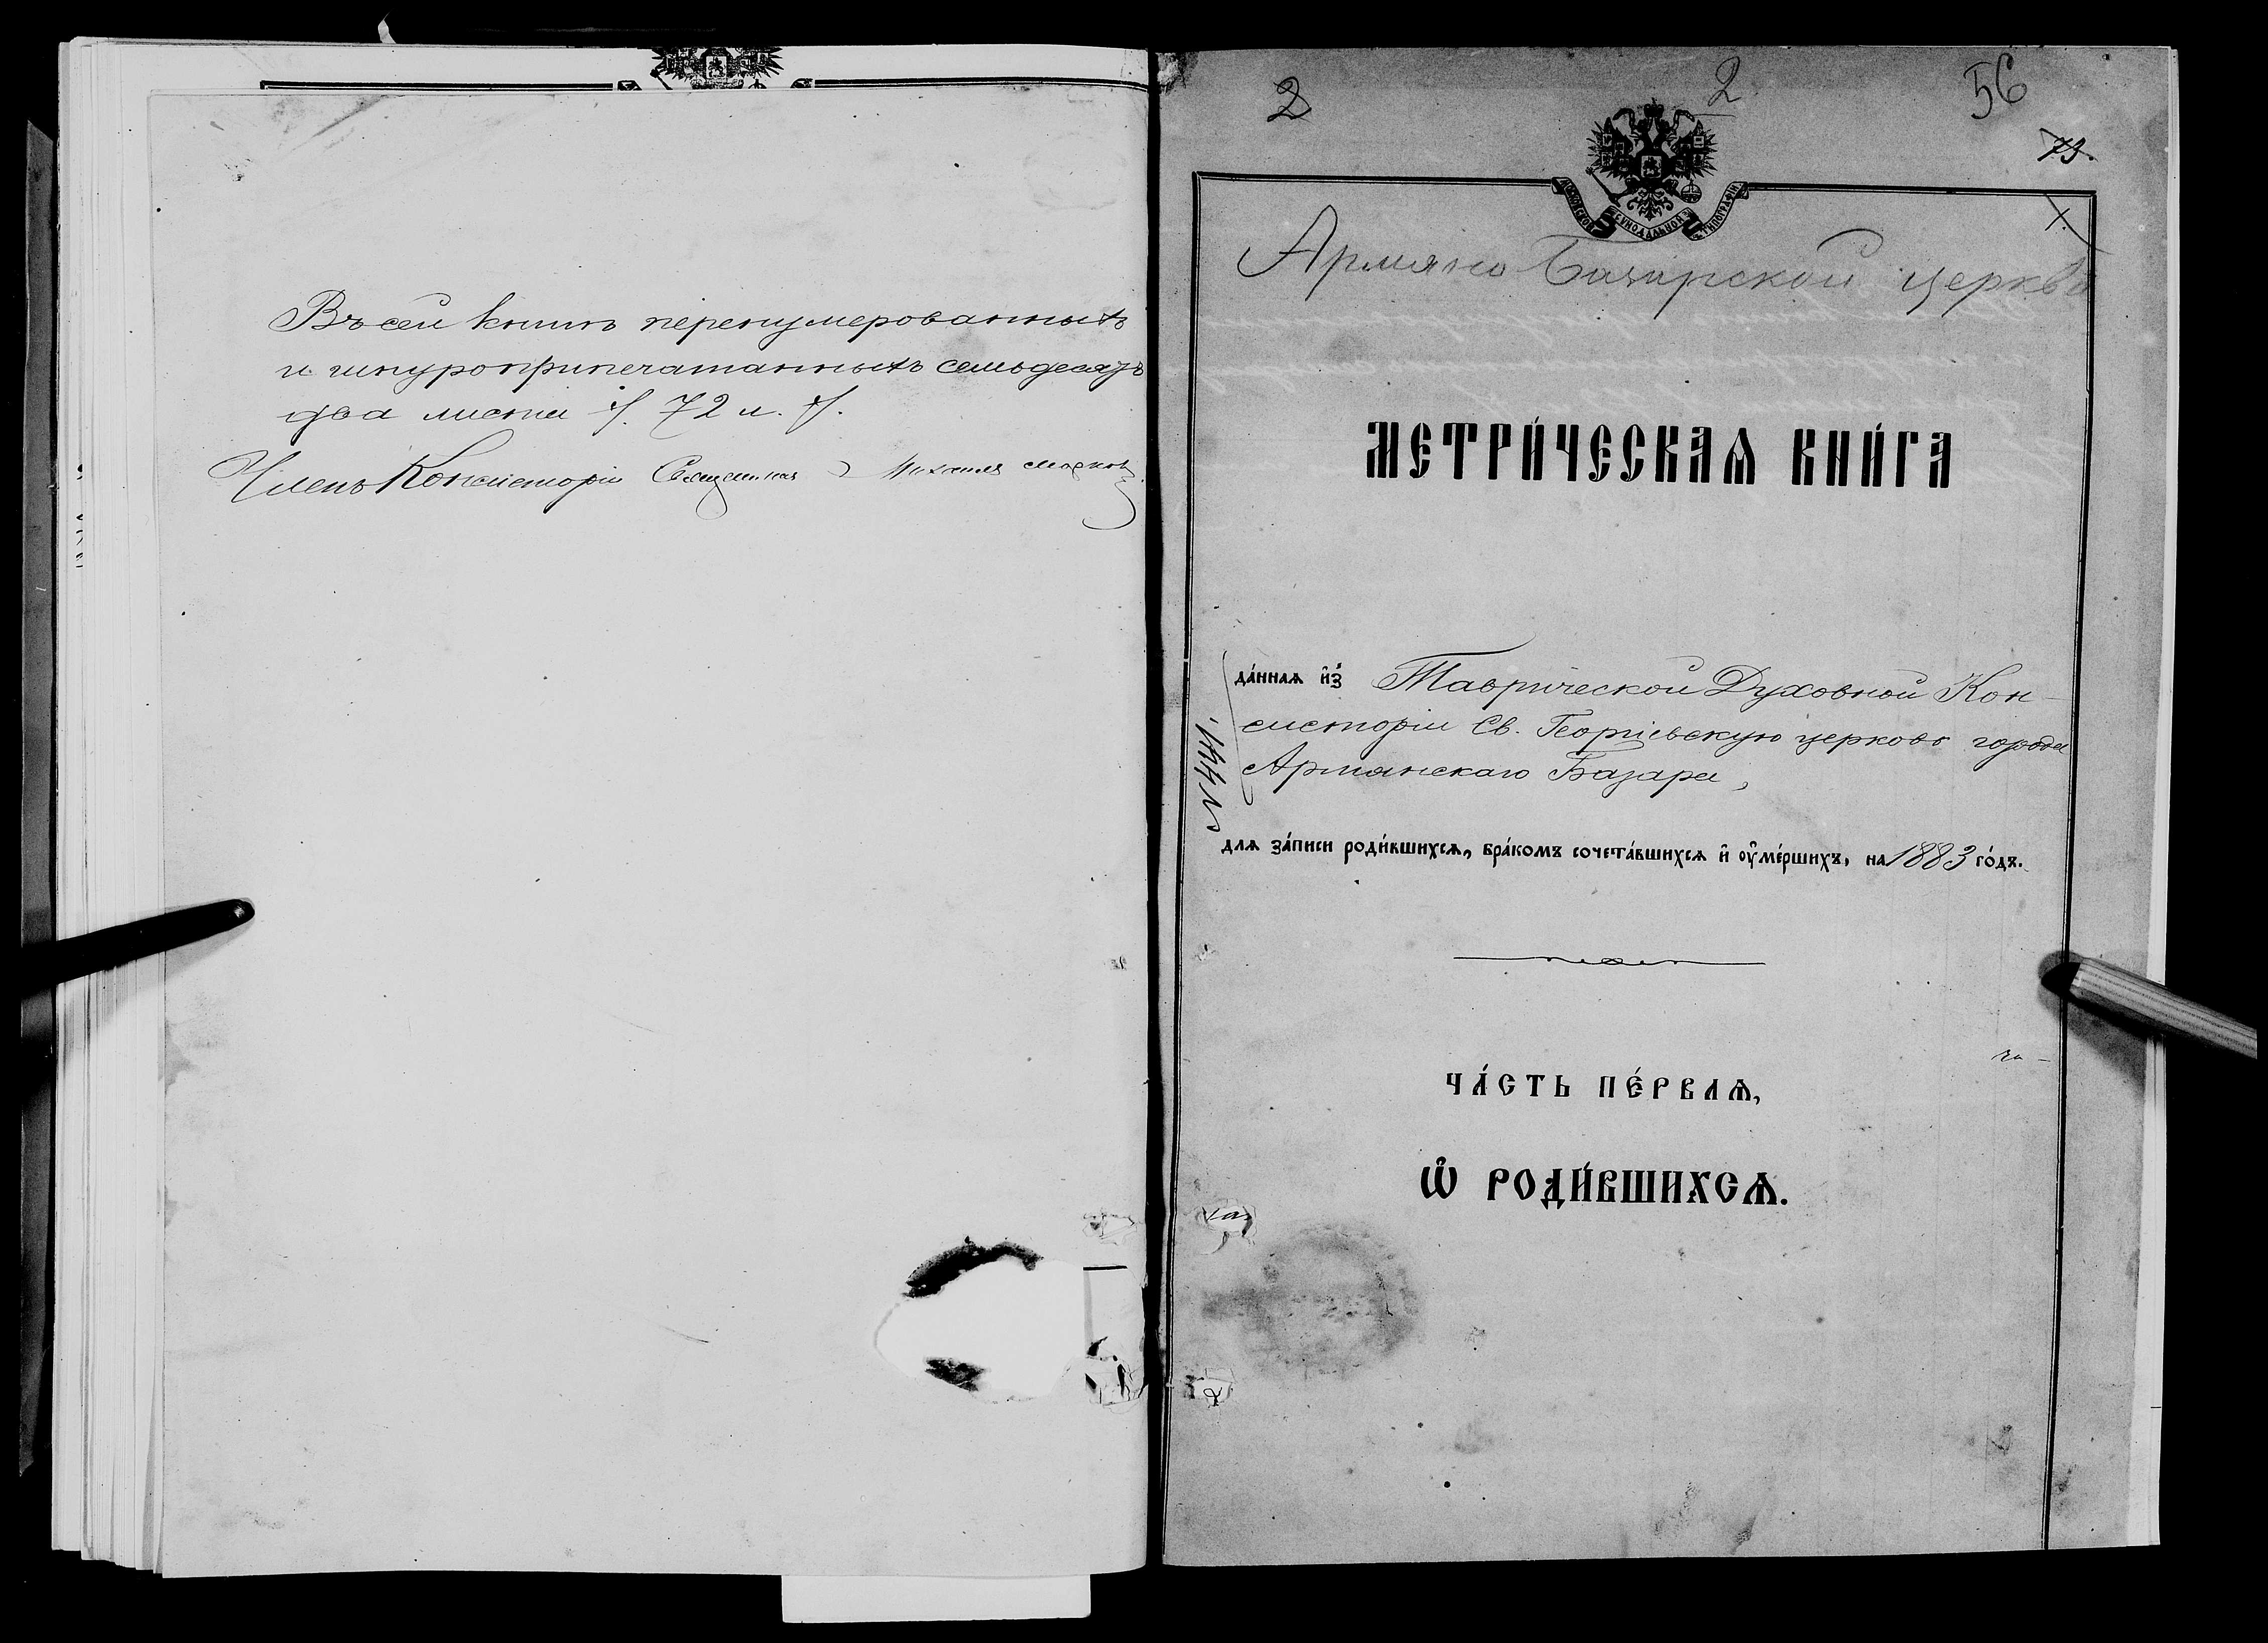 Въ сей книгѣ перенумерованныхъ
и шнуроприпечатанныхъ семьдесятъ
два листа /. 72 л. /.
Членъ Консисторіи Священникъ Михаилъ
2
2
56
73.
МОСКОВСКОЙ СѴНОДАЛЬНОЙ ТИПОГРАФІИ
1.
Армяно Базарской церкви
МЕТРИ́ЧЕСКАѦ КНИ́ГА
да́ннаѧ и҆з̾ Таврической Духовной Кон-
систоріи Св. Георгіевскую церковь города
Армянскаго Базара,
№ 441.
для за́писи роди́вшихсѧ, бра́комъ сочета́вшихсѧ и҆ ᲂу҆ме́ршихъ, на 1883 го́дъ.
ЧА́СТЬ ПЕ́РВАѦ,
Ѡ҆ РОДИ́ВШИХСѦ.